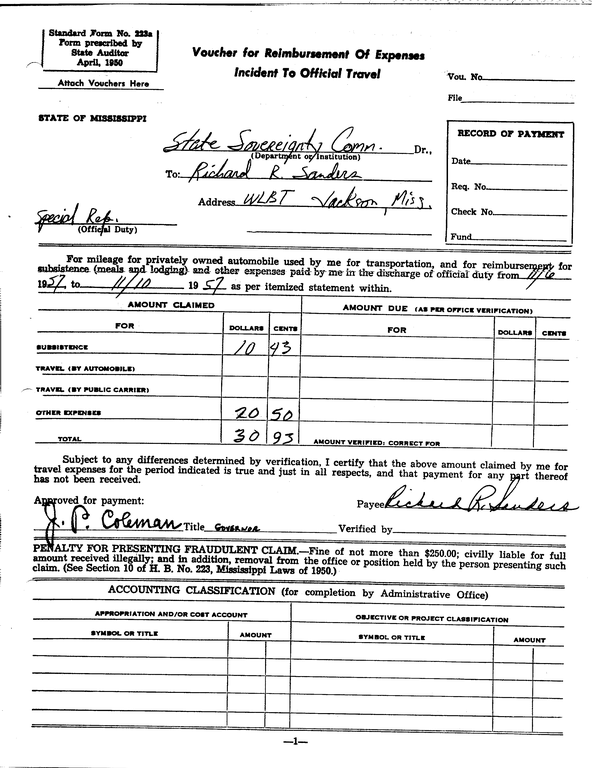 Standard Form No. 223a
Form prescribed by
State Auditor
April, 1950
Attach Vouchers Here
Voucher for Reimbursement Of Expenses
Incident To Official Travel
Vou. No.
File
STATE OF MISSISSIPPI
RECORD OF PAYMENT
Date
Req. No.
Check No.
Fund
State Sovereignty Comm. Dr.,
(Department or Institution)
To: Richard R. Sanders
Address WLBT Jackson, Miss.
Special Rep.
(Official Duty)
For mileage for privately owned automobile used by me for transportation, and for reimbursement for
subsistence (meals and lodging) and other expenses paid by me in the discharge of official duty from 11/6
1957 to 11/10 1957 as per itemized statement within.
AMOUNT CLAIMED AMOUNT DUE (AS PER OFFICE VERIFICATION)
FOR DOLLARS CENTS FOR DOLLARS CENTS
SUBSISTENCE 10 43
TRAVEL (BY AUTOMOBILE)
TRAVEL (BY PUBLIC CARRIER)
OTHER EXPENSES 20 50
TOTAL 30 93 AMOUNT VERIFIED: CORRECT FOR
Subject to any differences determined by verification, I certify that the above amount claimed by me for
travel expenses for the period indicated is true and just in all respects, and that payment for any part thereof
has not been received.
Approved for payment: Payee Richard R. Sanders
J. P. Coleman Title GOVERNOR Verified by
PENALTY FOR PRESENTING FRAUDULENT CLAIM.—Fine of not more than $250.00; civilly liable for full
amount received illegally; and in addition, removal from the office or position held by the person presenting such
claim. (See Section 10 of H. B. No. 223, Mississippi Laws of 1950.)
ACCOUNTING CLASSIFICATION (for completion by Administrative Office)
APPROPRIATION AND/OR COST ACCOUNT OBJECTIVE OR PROJECT CLASSIFICATION
SYMBOL OR TITLE AMOUNT SYMBOL OR TITLE AMOUNT
—1—